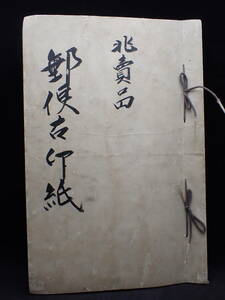 非賣品
郵便古印紙